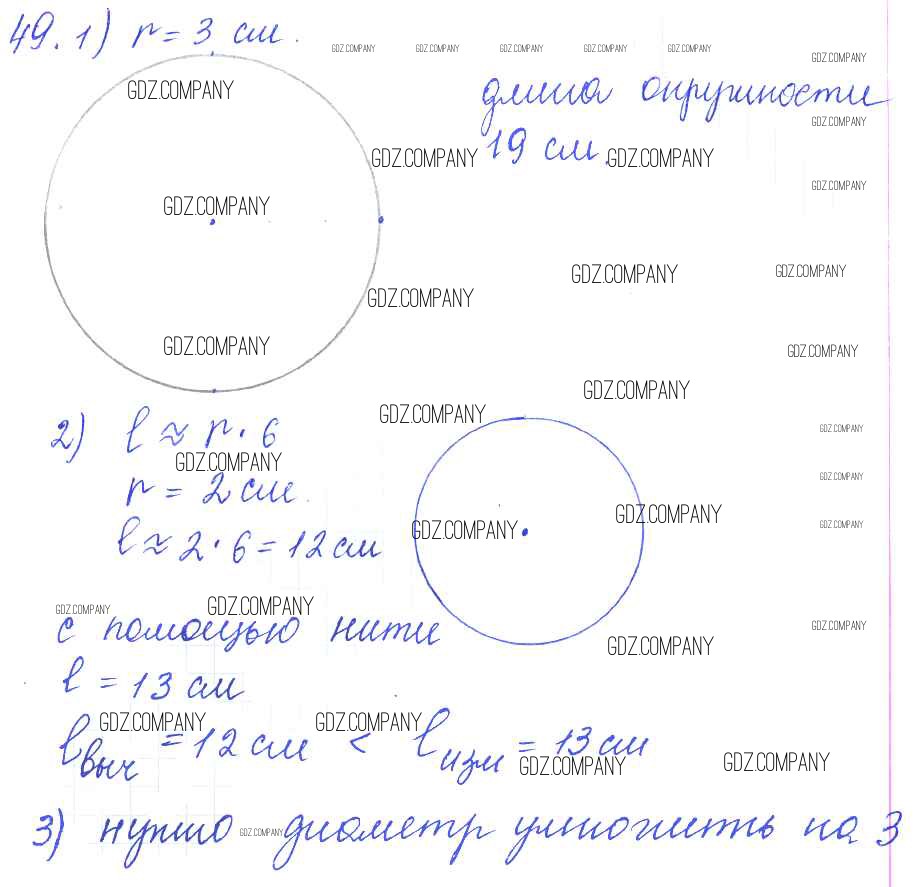 49. 1) r = 3 см.
GDZ.COMPANY GDZ.COMPANY GDZ.COMPANY GDZ.COMPANY GDZ.COMPANY
GDZ.COMPANY
GDZ.COMPANY
длина окружности
GDZ.COMPANY
19 см.
GDZ.COMPANY GDZ.COMPANY
GDZ.COMPANY
GDZ.COMPANY
GDZ.COMPANY GDZ.COMPANY
GDZ.COMPANY
GDZ.COMPANY GDZ.COMPANY
GDZ.COMPANY
GDZ.COMPANY
2) l ≈ r · 6
GDZ.COMPANY
GDZ.COMPANY
GDZ.COMPANY
r = 2 см.
l ≈ 2 · 6 = 12 см
GDZ.COMPANY GDZ.COMPANY GDZ.COMPANY
GDZ.COMPANY GDZ.COMPANY
с помощью нити
GDZ.COMPANY GDZ.COMPANY
l = 13 см
GDZ.COMPANY GDZ.COMPANY
lвыч = 12 см < lизм = 13 см
GDZ.COMPANY GDZ.COMPANY
3) нужно диаметр умножить на 3
GDZ.COMPANY